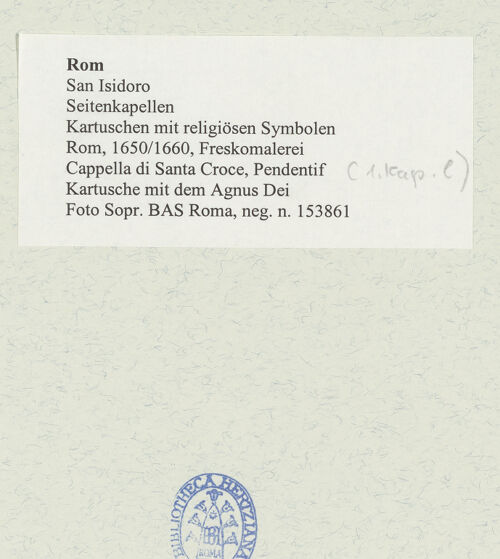 Rom
San Isidoro
Seitenkapellen
Kartuschen mit religiösen Symbolen
Rom, 1650/1660, Freskomalerei
Cappella di Santa Croce, Pendentif (1. Kap. l)
Kartusche mit dem Agnus Dei
Foto Sopr. BAS Roma, neg. n. 153861
BIBLIOTHECA HERTZIANA
ROMA